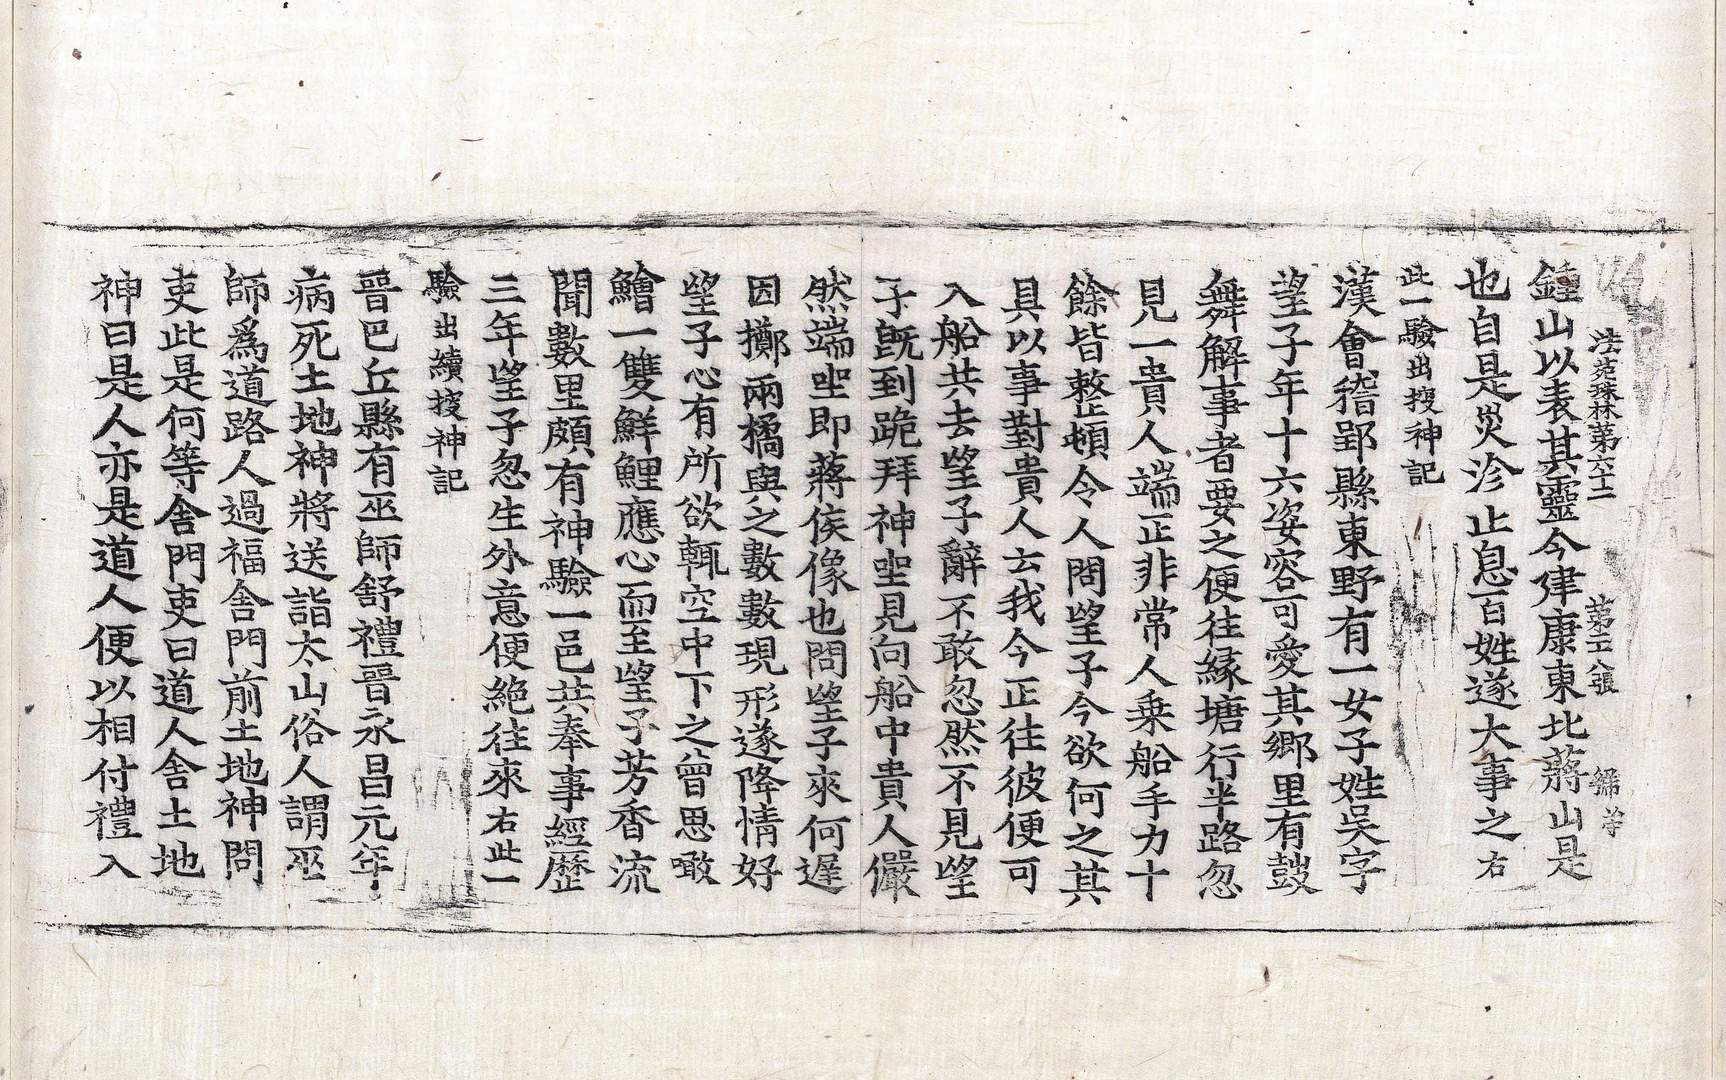 法苑珠林第六十二 第二八張 錦 等
鍾山以表其靈今建康東北蔣山是
也自是災沴止息百姓遂大事之右
此一驗出搜神記
漢會稽鄞縣東野有一女子姓吳字
望子年十六姿容可愛其鄉里有鼓
舞解事者要之便往緣塘行半路忽
見一貴人端正非常人乗船手力十
餘皆整頓令人問望子今欲何之其
具以事對貴人云我今正往彼便可
入船共去望子辭不敢忽然不見望
子旣到跪拜神坐見向船中貴人儼
然端坐即蔣侯像也問望子來何遲
因擲兩橘與之數數現形遂降情好
望子心有所欲輒空中下之曾思噉
鱠一雙鮮鯉應心而至望子芳香流
聞數里頗有神驗一邑共奉事經歷
三年望子忽生外意便絶往來右此一
驗出續搜神記
晉巴丘縣有巫師舒禮晉永昌元年
病死土地神將送詣太山俗人謂巫
師爲道路人過福舍門前土地神問
吏此是何等舍門吏曰道人舍土地
神曰是人亦是道人便以相付禮入